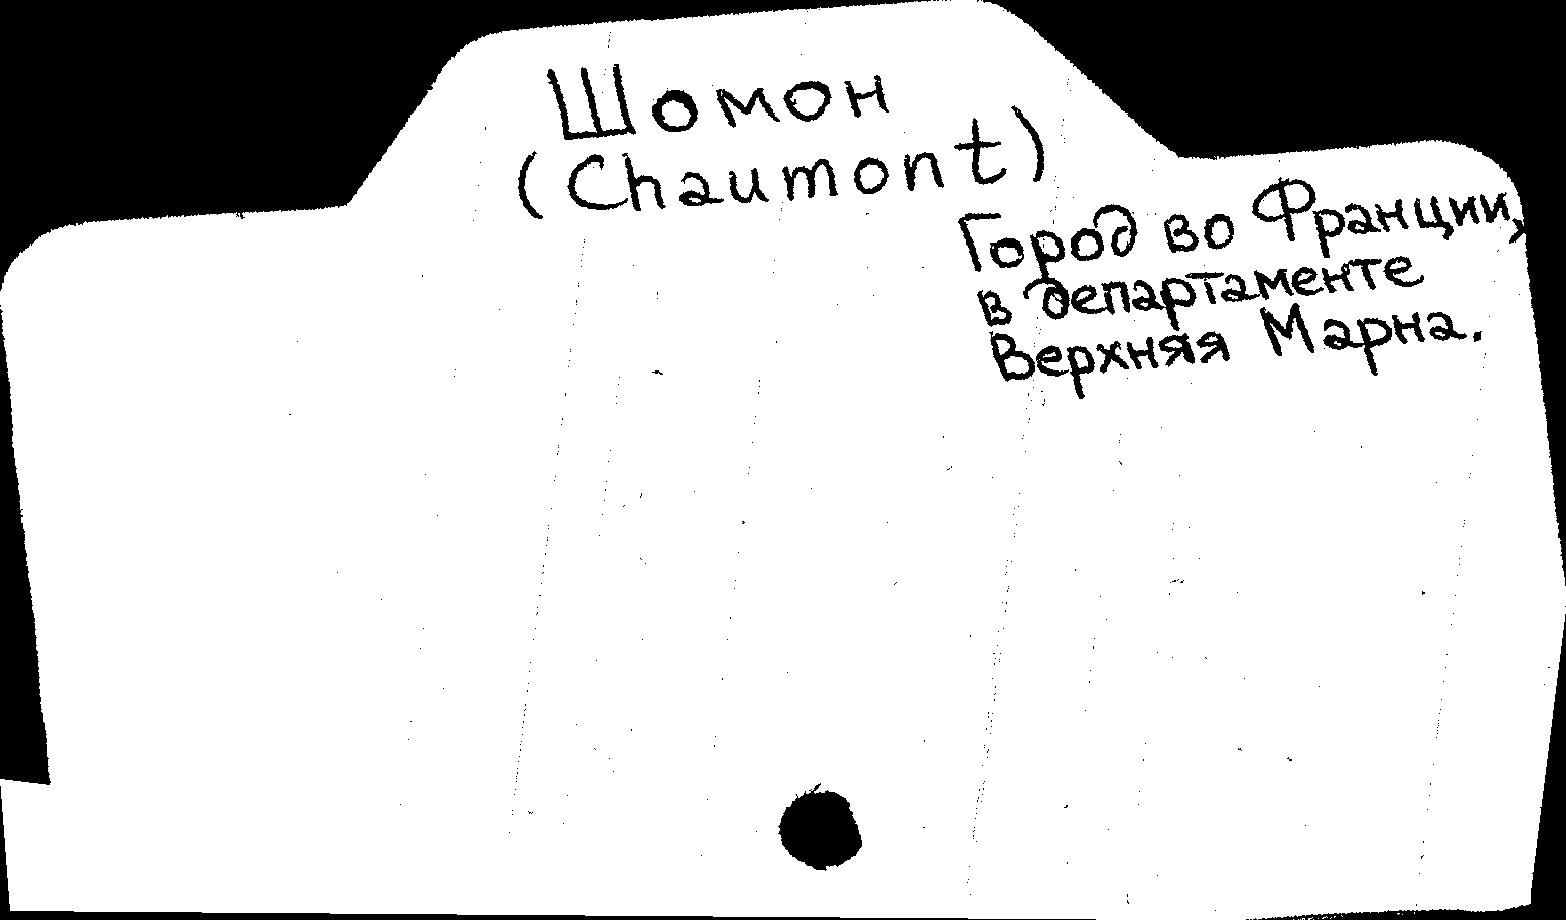 Шомон
(Chaumont)
Город во Франции,
в департаменте
Верхняя Марна.